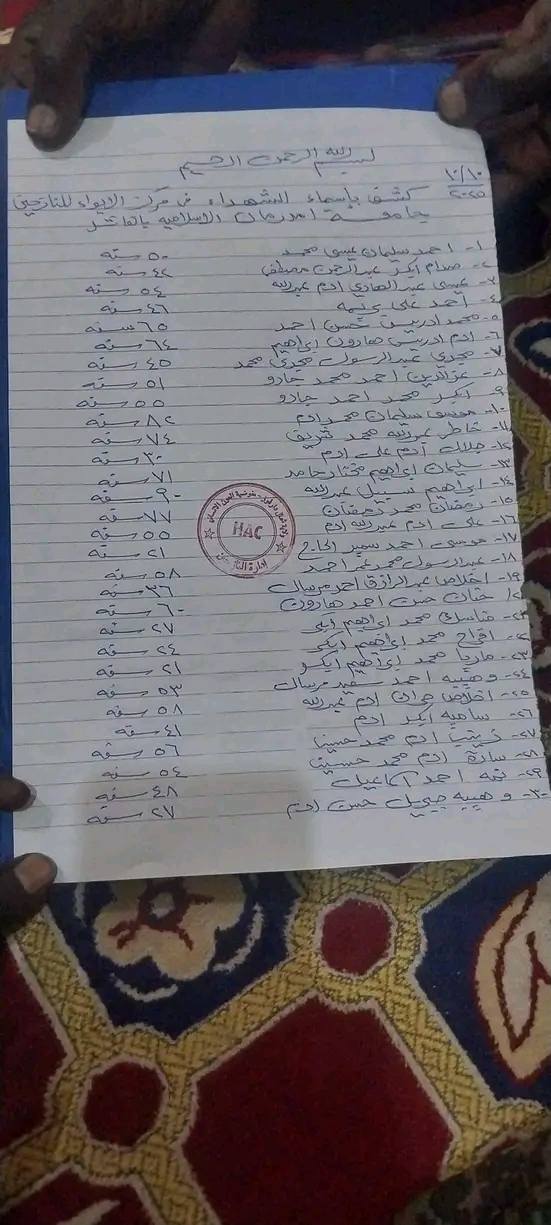 بسم الله الرحمن الرحيم
١٠/١٠
٢٠٢٥
كشف بأسماء الشهداء في مركز الايواء للنازحين
جامعة امدرمان الاسلامية بالفاشر
١- احمد سليمان عيسى محمد ٥٠ سنه
٢- صدام ابكر عبدالرحمن مصطفى ٤٢ سنه
٣- عيسى عبدالهادي ادم عبدالله ٥٤ سنه
٤- احمد علي ٤٦ سنه
٥- محمد ادريس حسن احمد ٦٥ سنه
٦- ادم ادريس هارون ابراهيم ٦٤ سنه
٧- مجدي عبدالرسول مجدي محمد ٤٥ سنه
٨- عزالدين احمد محمد جادو ٥١ سنه
٩- ابكر محمد احمد جادو ٥٥ سنه
١٠- موسى سليمان محمد ادم ٨٢ سنه
١١- خاطر عبدالله محمد شريف ٧٤ سنه
١٢- جلال ادم علي ادم ٣٠ سنه
١٣- سليمان ابراهيم مختار حامد ٧١ سنه
١٤- ابراهيم سبيل عبدالله ٩٠ سنه
١٥- رمضان محمد رمضان ٧٧ سنه
١٦- علي ادم عبدالله ادم ٥٥ سنه
١٧- موسى احمد سمير الحاج ٢١ سنه
١٨- عبدالرسول محمد عمر احمد ٥٨ سنه
١٩- اخلاص عبدالرازق احمد مرسال ٣٦ سنه
حنان حسن احمد هارون ٦٠ سنه
محمد ابراهيم ابكر ٢٧ سنه
٢٢- افراح محمد ابراهيم ابكر ٢٤ سنه
٢٣- ماريا محمد ابراهيم ابكر ٢١ سنه
٢٤- وهيبه احمد سعيد مرسال ٥٣ سنه
٢٥- اخلاص ادم عبدالله ٥٨ سنه
٢٦- ساميه ابكر ادم ٤١ سنه
٢٧- زينب ادم محمد حسين ٥٦ سنه
٢٨- سارة ادم محمد حسين ٥٤ سنه
٢٩- احمد اسماعيل ٤٨ سنه
٣٠- وهيبه جبريل حسن ادم ٢٧ سنه
HAC